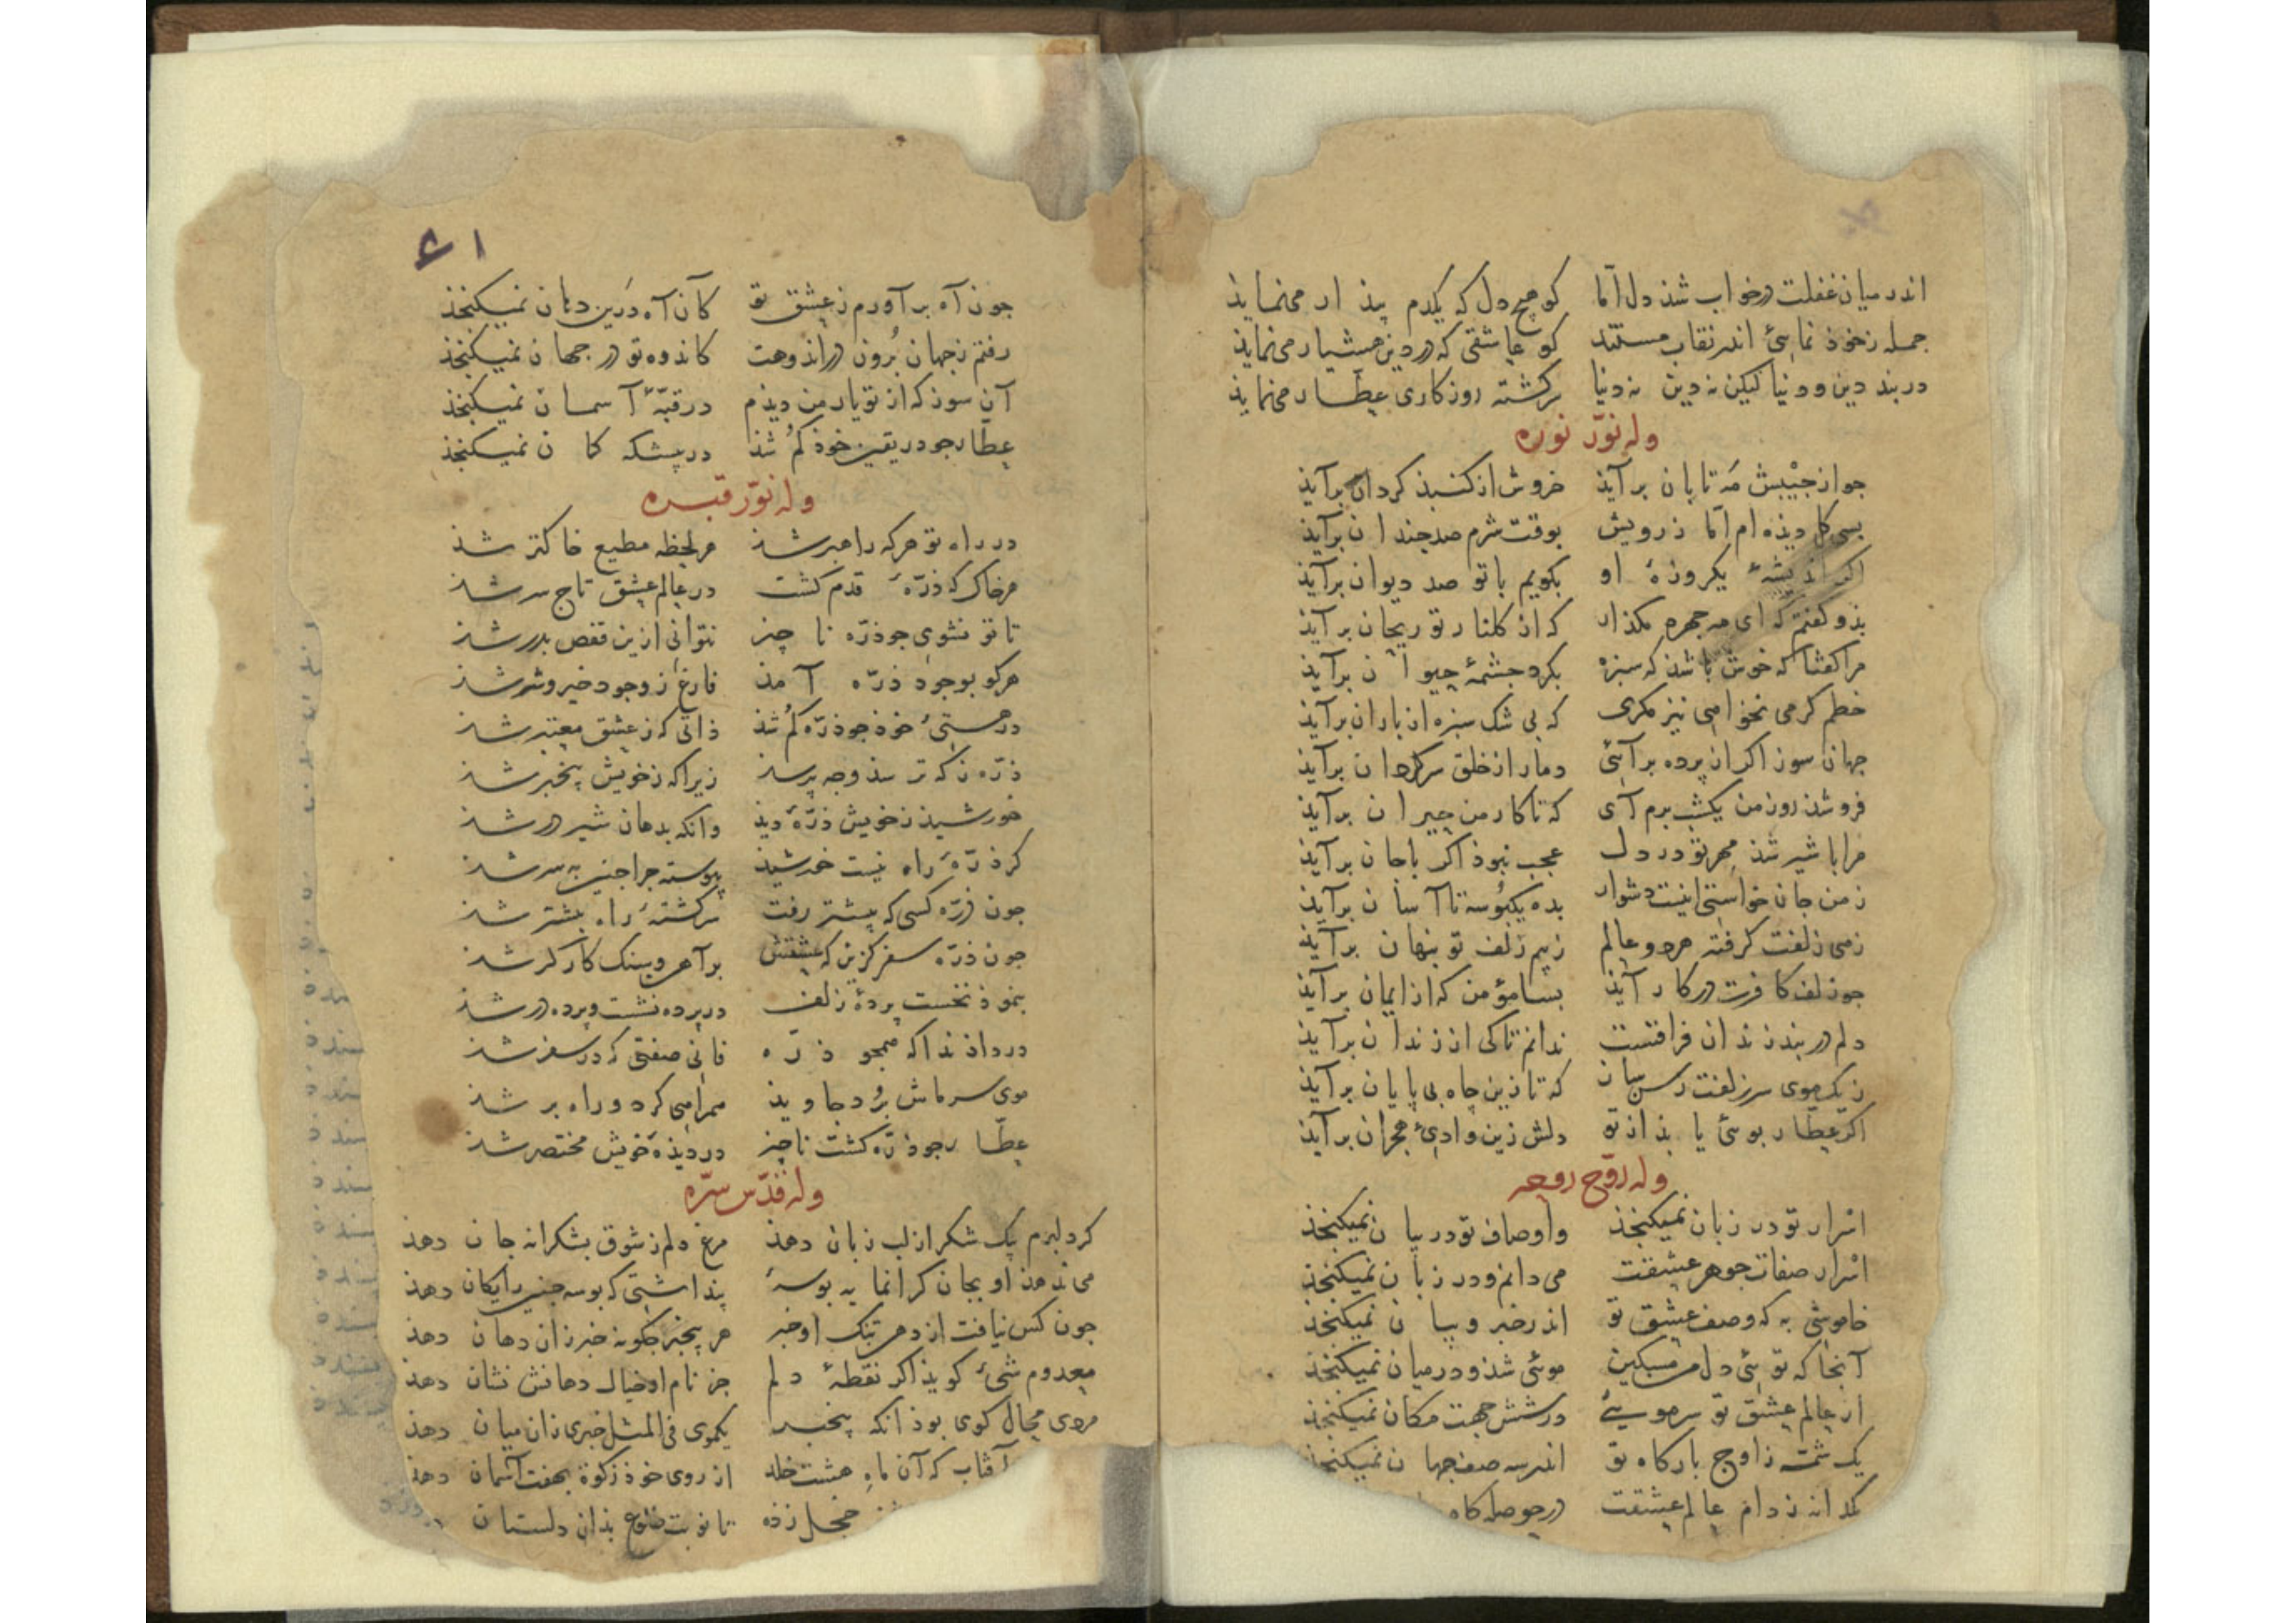 اندر میان غفلت درخواب شذ دل اما کو هیچ دل که یکدم بیذار می نمایذ
جمله ز خوذ نمائی اندر نقاب مستند کو عاشقی که در دین هشیار می نمایذ
در بند دین و دنیا لیکن نه دین نه دنیا سرکشته روزکاری عطار می نمایذ
وله نوّر نوره
جو از جیبش مه تابان برآیذ خروش از کنبذ کردان برآیذ
بسی کل دیذه ام اما ز رویش بوقت شرم صد جندان برآیذ
اکر اندیشهٔ یکروزهٔ او بکویم با تو صد دیوان برآیذ
بذو کفتم که ای مه جهره مکذار که از کلنار تو ریحان برآیذ
مرا کفتا که خوش باشذ که سبزه بکرد جشمهٔ حیوان برآیذ
خطم کر می نخواهی نیز مکری که بی شک سبزه از باران برآیذ
جهان سوز اکر از پرده برآئی دمار از خلق سرکردان برآیذ
فرو شذ روز من یکشب برم آی که تا کار من حیران برآیذ
مرا با شیر شذ مهر تو در دل عجب نبوذ اکر با جان برآیذ
ز من جان خواستی اینت دشوار بده یک بوسه تا آسان برآیذ
زهی زلفت کرفته هر دو عالم ز بیم زلف تو بنهان برآیذ
جو زلف کافرت در کار آیذ بسا مؤمن که از ایمان برآیذ
دلم در بند زندان فراقتست ندانم تا کی از زندان برآیذ
ز یک موی سر زلفت رسن سان که تا زین جاه بی پایان برآیذ
اکر عطار بوئی یابذ از تو دلش زین وادئ هجران برآیذ
وله روّح روحه
اسرار تو در زبان نمیکنجذ و اوصاف تو در بیان نمیکنجذ
اسرار صفات جوهر عشقت می دانم و در زبان نمیکنجذ
خاموشی به که وصف عشق تو اندر خبر و بیان نمیکنجذ
آنجا که توئی دل من مسکین موئی شذ و در میان نمیکنجذ
از عالم عشق تو سر موئی در شش جهت مکان نمیکنجذ
یک شمه ز اوج بارکاه تو اندر سه صف جهان نمیکنجذ
یکدانه ز دام عالم عشقت در حوصله کا
۶۱
جون آه برآورم ز عشق تو کآن آه درین دهان نمیکنجذ
رفتم ز جهان برون در اندوهت کاندوه تو در جهان نمیکنجذ
آن سوز که از تو یار من دیذم در قبهٔ آسمان نمیکنجذ
عطار جو در یقین خوذ کم شذ در بیشکه کمان نمیکنجذ
وله نوّر قبره
در راه تو هر که راهبر شذ هر لحظه مطیع خاکتر شذ
هر خاک که ذرّهٔ قدم کشت در عالم عشق تاج سر شذ
تا تو نشوی جو ذرّه ناجیز نتوانی ازین قفص بدر شذ
هر کو بوجود ذرّه آمذ فارغ ز وجود خیر و شر شذ
در هستئ خوذ جو ذرّه کم شذ ذاتی که ز عشق معتبر شذ
ذرّه ز که ترسذ و جه پرسذ زیرا که ز خویش بیخبر شذ
خورشیذ ز خویش ذرّهٔ دیذ وانکه بدهان شیر در شذ
کر ذرّهٔ راه نیست خورشیذ پیوسته جرا جنین بسر شذ
جون ذرّه کسی که بیشتر رفت سرکشتهٔ راه بیشتر شذ
جون ذرّه سفر کزین که عشقش بر آهن و سنک کارکر شذ
بنموذ نخست پردهٔ زلف در پرده نشست و پرده در شذ
در داذ نذا که همجو ذرّه فانی صفتی که در سفر شذ
موی سر ماش برد جاویذ همراهی کرد و راه بر شذ
عطار جو ذرّه کشت ناجیز در دیذهٔ خویش مختصر شذ
وله قدّس سرّه
کر دلبرم یک شکر از لب زبان دهذ مرغ دلم ز شوق بشکرانه جان دهذ
می ندهذ او بجان کرانمایه بوسهٔ پنداشتی که بوسه جنین رایکان دهذ
جون کس نیافت از دهن تنک او خبر هر بیخبر جکونه خبر زان دهان دهذ
معدوم شئ کویذ اکر نقطهٔ دلم جز نام او خیال دهانش نشان دهذ
مردی محال کوی بوذ آنکه بیخبر یکموی فی المثل خبری زان میان دهذ
آفتاب که آن ماه هشت خلد از روی خوذ زکوة بهفت آسمان دهذ
خجل زذه تا نوبت طلوع بذان دلستان